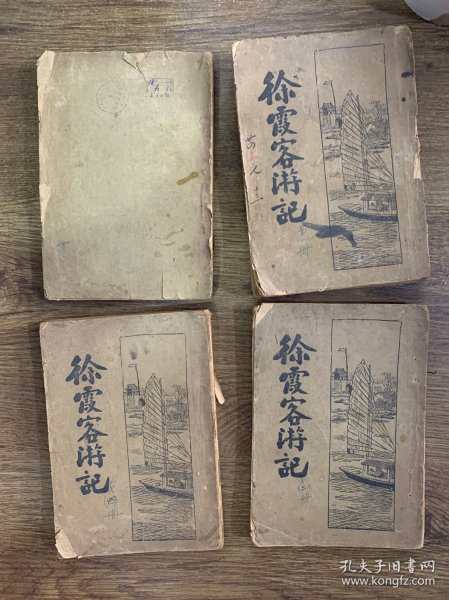 徐霞客游记
册
徐霞客游记
册
徐霞客游记
册
孔夫子旧书网
www.kongfz.com